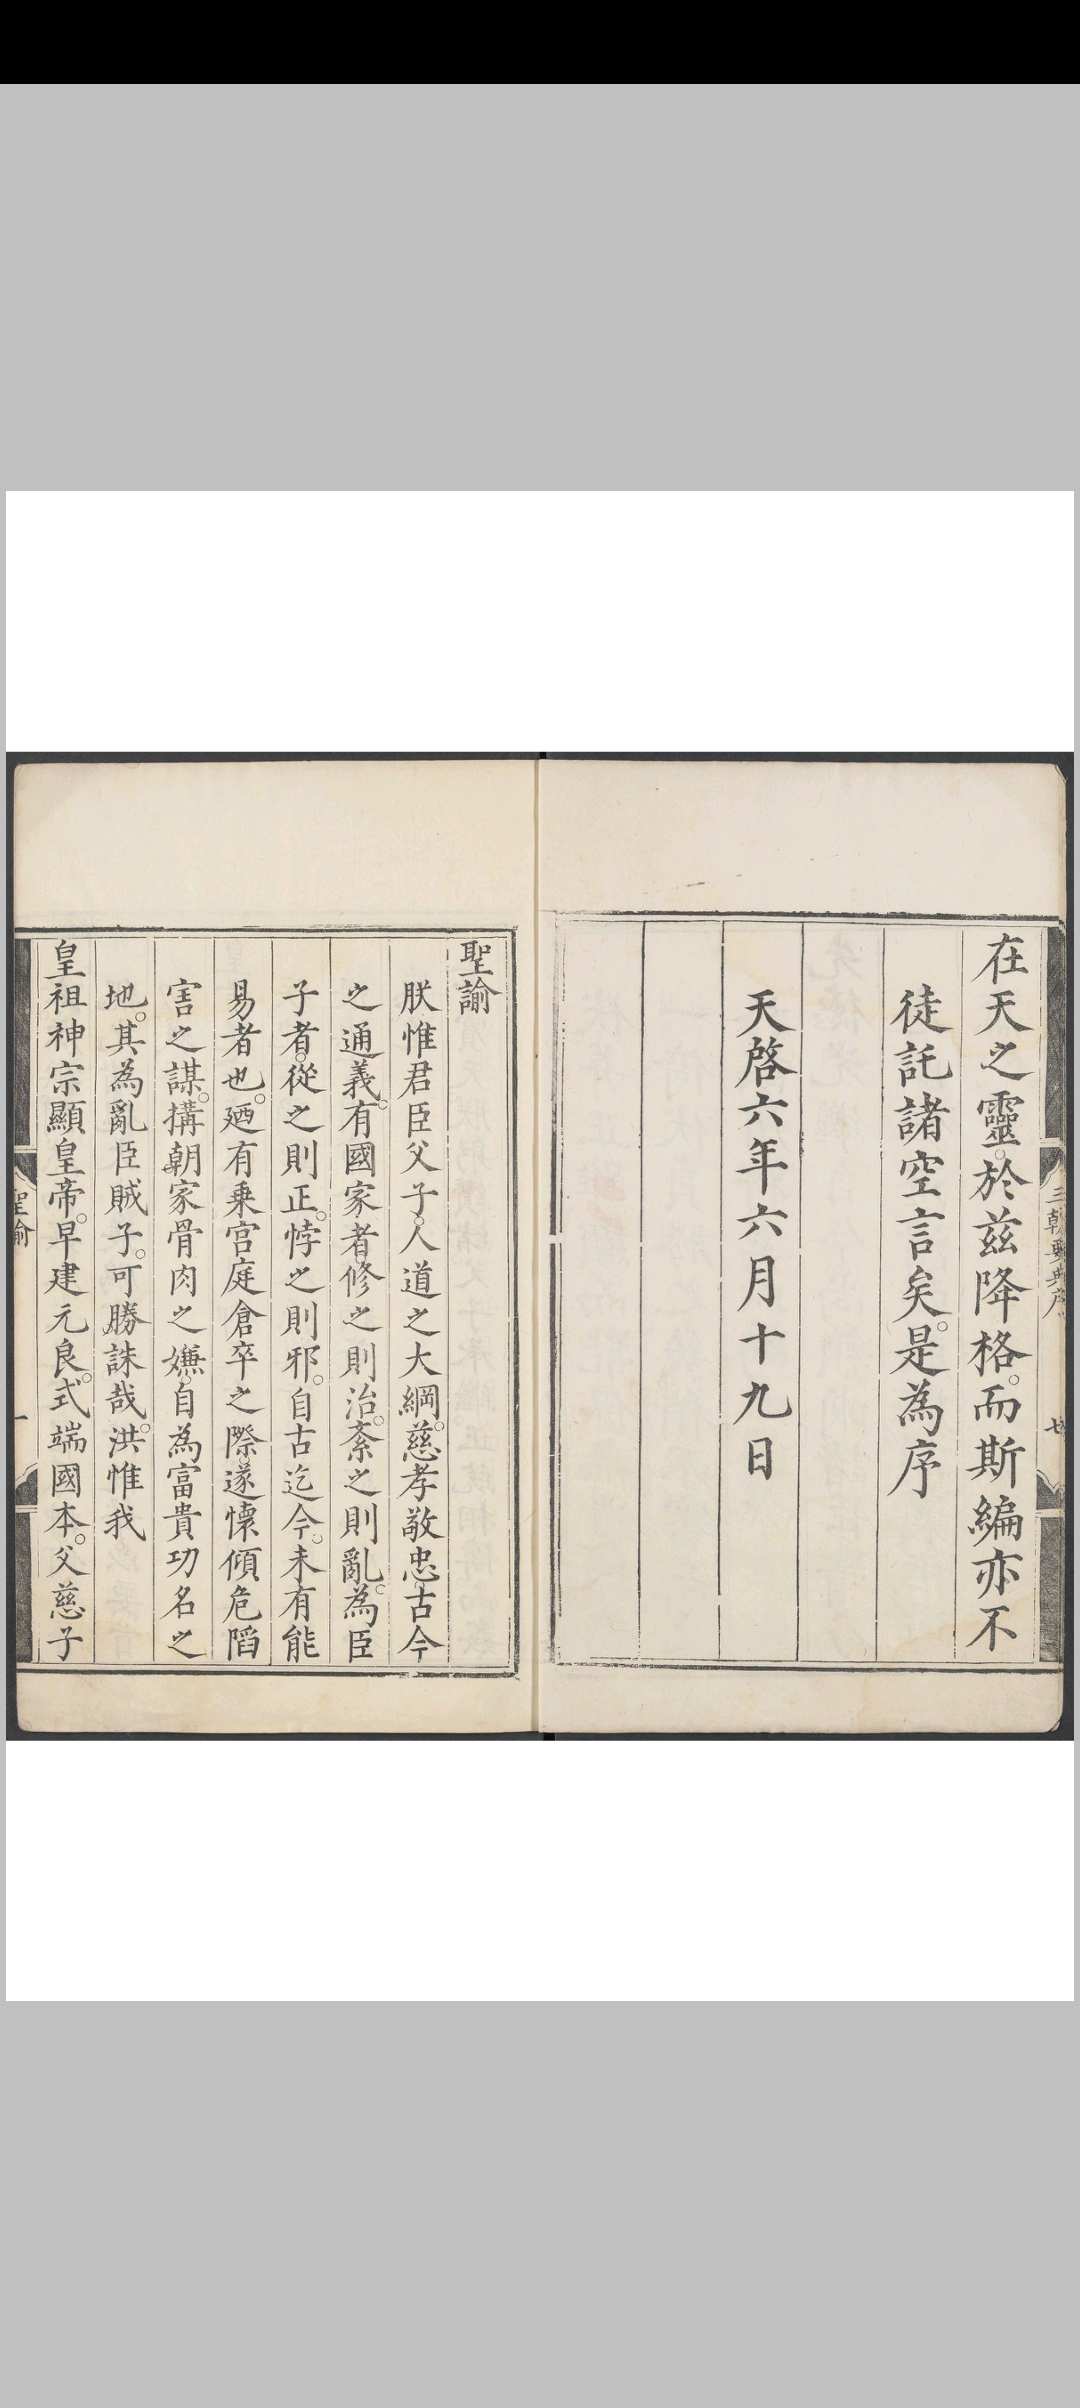 在天之靈。於茲降格。而斯編亦不
徒託諸空言矣。是為序
天啓六年六月十九日
聖諭
朕惟君臣父子。人道之大綱。慈孝敬忠。古今
之通義。有國家者。修之則治。紊之則亂。為臣
子者。從之則正。悖之則邪。自古迄今。未有能
易者也。廼有乘宮庭倉卒之際。遂懷傾危陷
害之謀。搆朝家骨肉之嫌。自為富貴功名之
地。其為亂臣賊子。可勝誅哉。洪惟我
皇祖神宗顯皇帝。早建元良。式端國本。父慈子
聖諭
一